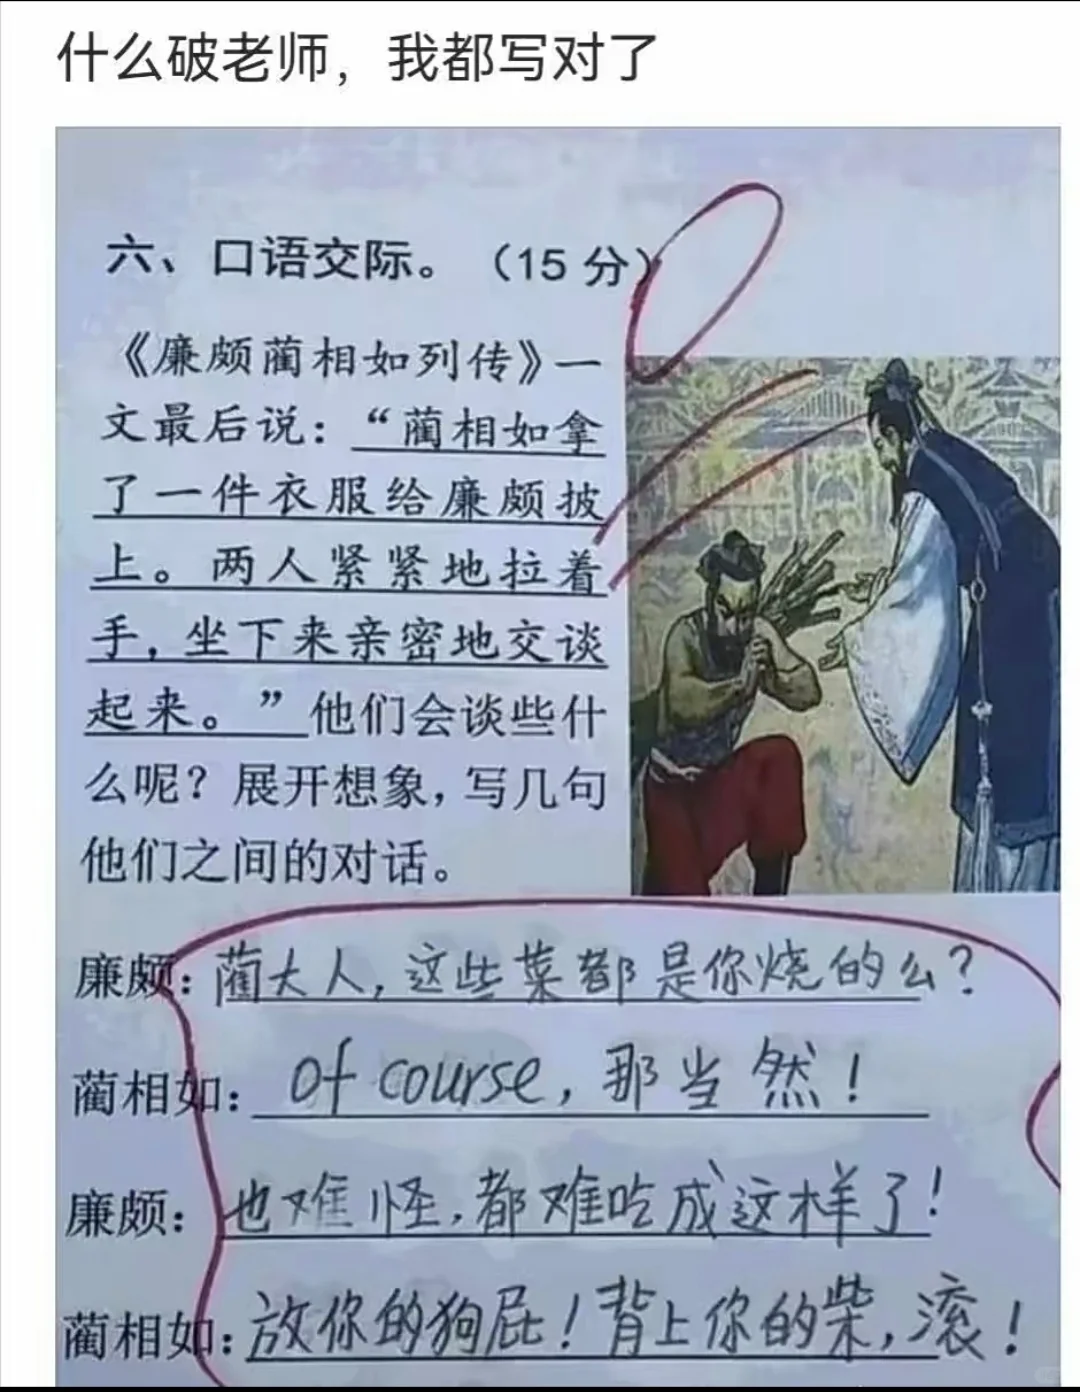 什么破老师，我都写对了
六、口语交际。（15 分）
《廉颇蔺相如列传》一
文最后说：“蔺相如拿
了一件衣服给廉颇披
上。两人紧紧地拉着
手，坐下来亲密地交谈
起来。”他们会谈些什
么呢？展开想象，写几句
他们之间的对话。
廉颇：蔺大人，这些菜都是你烧的么？
蔺相如：of course，那当然！
廉颇：也难怪，都难吃成这样了！
蔺相如：放你的狗屁！背上你的柴，滚！